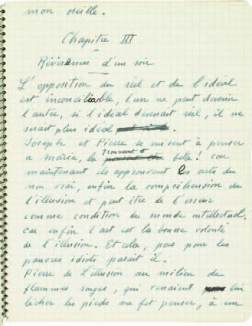 mon oreille.
Chapitre III
Rêveries d'un soir
L'opposition du réel et de l'idéal
est inconciliable, l'un ne peut devenir
l'autre, si l'idéal devenait réel, il ne
serait plus idéal
Joseph et Pierre se mirent à penser
à maria, la bête ! car
maintenant ils approuvent les actes du
non vrai, enfin la compréhension de
l'illusion et peut être de l'erreur
comme condition du monde intellectuel,
car enfin l'art est la bonne volonté
de l'illusion. Et cela, pas pour les
pauvres idiots parait il.
Pierre l'illusion au milieu de
flammes rouges, qui venaient lui
lécher les pieds au fit penser, à une